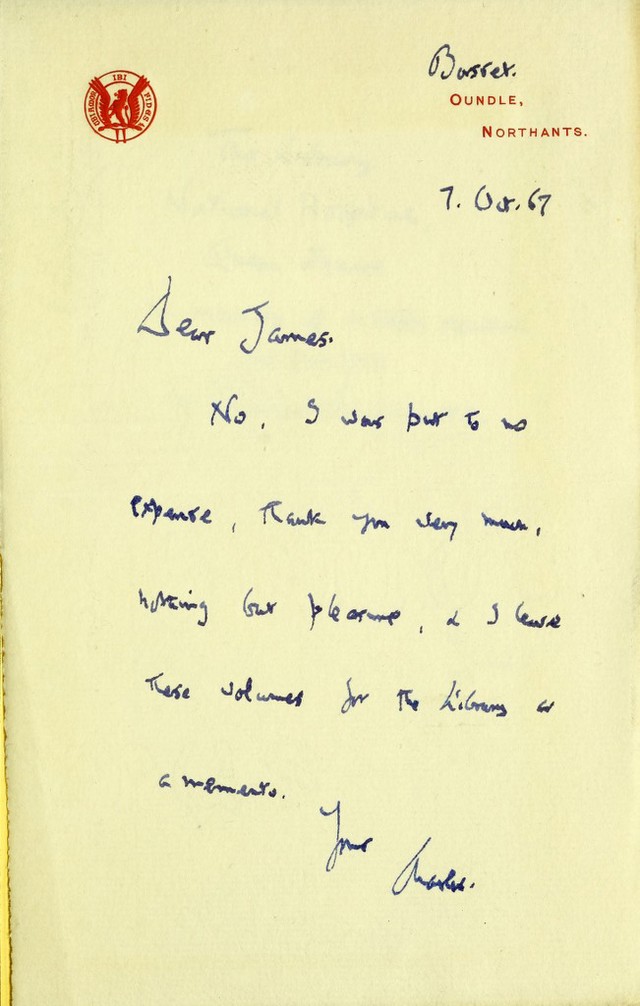 UBI AMOR IBI FIDES
OUNDLE,
NORTHANTS.
7. Oct. 67
Dear James.
No, I was put to no
expense, thank you very much,
nothing but pleasure, & I leave
these volumes for the Library as
a memento.
Yours
Charles.